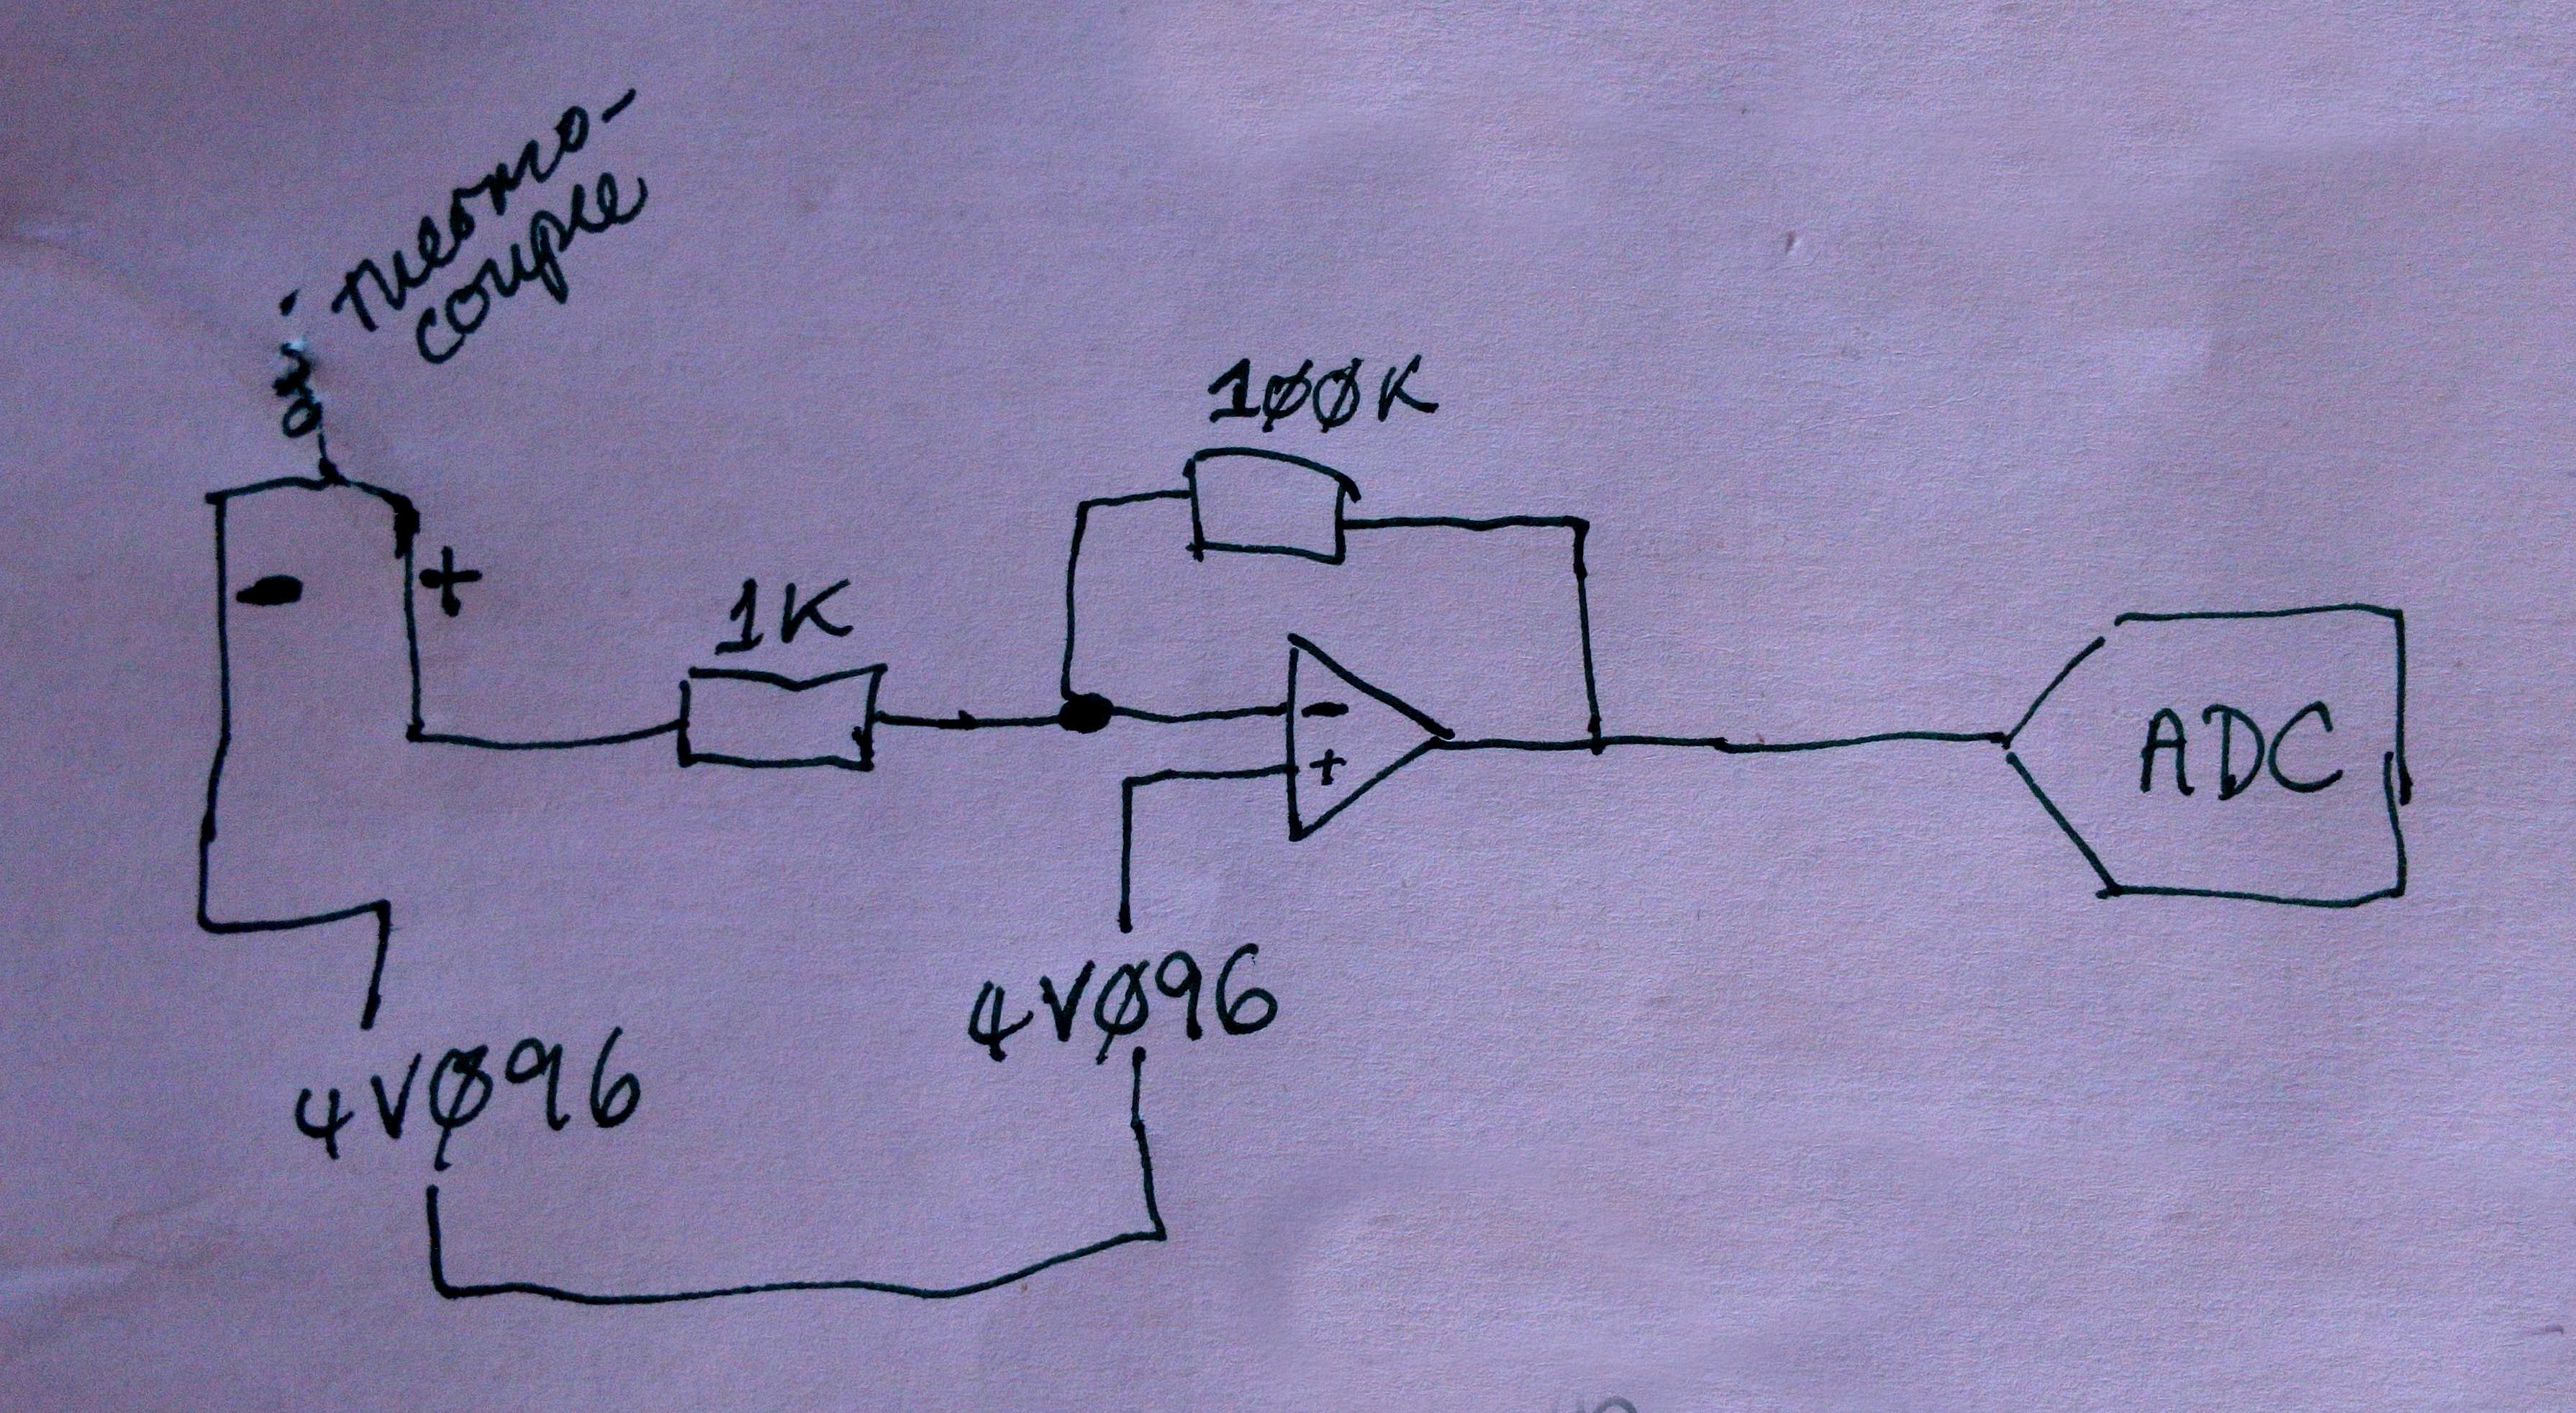 thermo-
couple
100K
- +
1K
-
+
ADC
4V096
4V096